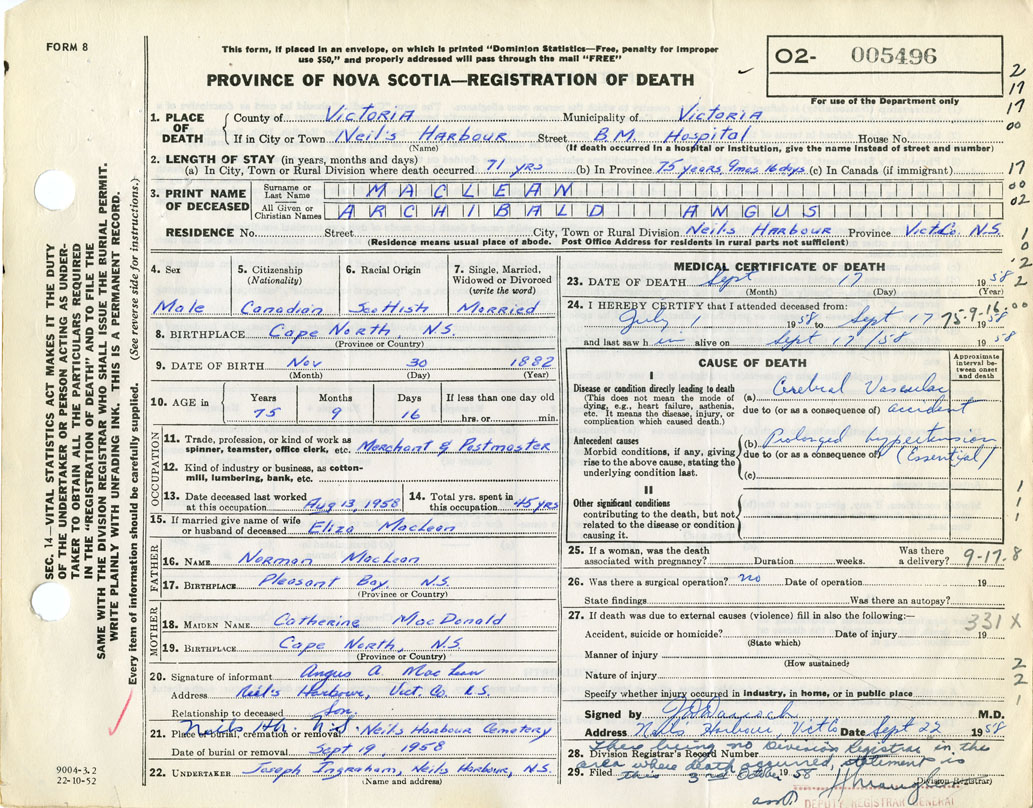 FORM 8
This form, if placed in an envelope, on which is printed "Dominion Statistics—Free, penalty for improper
use $50," and properly addressed will pass through the mail "FREE"
PROVINCE OF NOVA SCOTIA—REGISTRATION OF DEATH
02- 005496
For use of the Department only
1. PLACE OF DEATH
County of Victoria Municipality of Victoria
If in City or Town Neil's Harbour Street B.M. Hospital House No.
(Name) (If death occurred in a hospital or institution, give the name instead of street and number)
2. LENGTH OF STAY (in years, months and days)
(a) In City, Town or Rural Division where death occurred 71 yrs (b) In Province 75 years 9 mos 16 days (c) In Canada (if immigrant)
3. PRINT NAME OF DECEASED
Surname or Last Name MACLEAN
All Given or Christian Names ARCHIBALD ANGUS
RESIDENCE No. Street City, Town or Rural Division Neil's Harbour Province Vict Co. N.S.
(Residence means usual place of abode. Post Office Address for residents in rural parts not sufficient)
4. Sex
Male
5. Citizenship
(Nationality)
Canadian
6. Racial Origin
Scottish
7. Single, Married,
Widowed or Divorced
(write the word)
Married
8. BIRTHPLACE Cape North, N.S.
(Province or Country)
9. DATE OF BIRTH Nov 30 1882
(Month) (Day) (Year)
10. AGE in
Years Months Days If less than one day old
75 9 16 hrs. or min.
OCCUPATION
11. Trade, profession, or kind of work as
spinner, teamster, office clerk, etc. Merchant & Postmaster
12. Kind of industry or business, as cotton-
mill, lumbering, bank, etc.
13. Date deceased last worked
at this occupation Aug 13, 1958
14. Total yrs. spent in
this occupation 45 yrs
15. If married give name of wife
or husband of deceased Eliza MacLean
FATHER
16. NAME Norman MacLean
17. BIRTHPLACE Pleasant Bay, N.S.
(Province or Country)
MOTHER
18. MAIDEN NAME Catherine MacDonald
19. BIRTHPLACE Cape North, N.S.
(Province or Country)
20. Signature of informant Angus A. MacLean
Address Neil's Harbour, Vict. Co. N.S.
Relationship to deceased Son.
21. Place of burial, cremation or removal Neils Hbr N.S. Neils Harbour Cemetery
Date of burial or removal Sept 19, 1958
22. UNDERTAKER Joseph Ingraham, Neils Harbour, N.S.
(Name and address)
MEDICAL CERTIFICATE OF DEATH
23. DATE OF DEATH Sept 17 1958
(Month) (Day) (Year)
24. I HEREBY CERTIFY that I attended deceased from:
July 1 1958 to Sept 17 1958
75-9-16
and last saw him alive on Sept 17/58 1958
CAUSE OF DEATH
Approximate
interval be-
tween onset
and death
I
Disease or condition directly leading to death
(This does not mean the mode of
dying, e.g., heart failure, asthenia,
etc. It means the disease, injury, or
complication which caused death.)
(a) Cerebral Vascular
due to (or as a consequence of) accident
Antecedent causes
Morbid conditions, if any, giving
rise to the above cause, stating the
underlying condition last.
(b) Prolonged hypertension
due to (or as a consequence of) (Essential)
(c)
II
Other significant conditions
contributing to the death, but not
related to the disease or condition
causing it.
25. If a woman, was the death
associated with pregnancy? Duration weeks. Was there
a delivery?
9-17-8
26. Was there a surgical operation? no Date of operation 19
State findings Was there an autopsy?
27. If death was due to external causes (violence) fill in also the following:—
331 X
Accident, suicide or homicide? Date of injury 19
(State which)
Manner of injury
(How sustained)
Nature of injury
Specify whether injury occurred in industry, in home, or in public place
Signed by M.D.
Address Neils Harbour, Vict Co Date Sept 22 1958
28. Division Registrar's Record Number
There being no Division Registrar in the
area where death occurred, statement is
29. Filed this 3rd October 1958
(Division Registrar)
DEPUTY REGISTRAR GENERAL
SEC. 14—VITAL STATISTICS ACT MAKES IT THE DUTY
OF THE UNDERTAKER OR PERSON ACTING AS UNDER-
TAKER TO OBTAIN ALL THE PARTICULARS REQUIRED
IN THE "REGISTRATION OF DEATH" AND TO FILE THE
SAME WITH THE DIVISION REGISTRAR WHO SHALL ISSUE THE BURIAL PERMIT.
WRITE PLAINLY WITH UNFADING INK. THIS IS A PERMANENT RECORD.
Every item of information should be carefully supplied. (See reverse side for instructions.)
9004-3.2
22-10-52
2
17
17
00
17
00
02
1
0
2
2
00
1
1
1
2
2
1